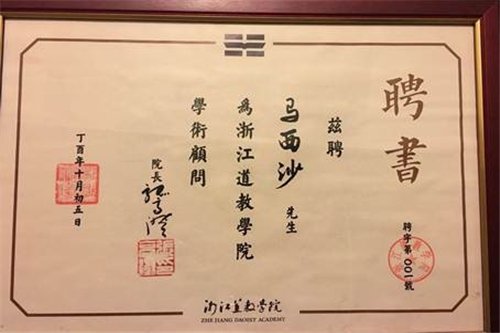 聘書
聘字第〇〇一號
茲聘
马西沙 先生
為浙江道教學院
學術顧問
院長
丁酉年十月初五日
浙江道教學院
ZHE JIANG DAOIST ACADEMY